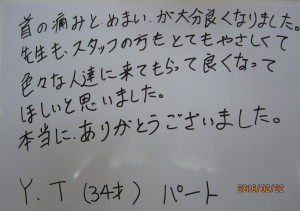 首の痛みと、めまい、が大分良くなりました。
先生も、スタッフの方も とてもやさしくて
色々な人達に来てもらって良くなって
ほしいと思いました。
本当に、ありがとうございました。
Y.T (34才) パート